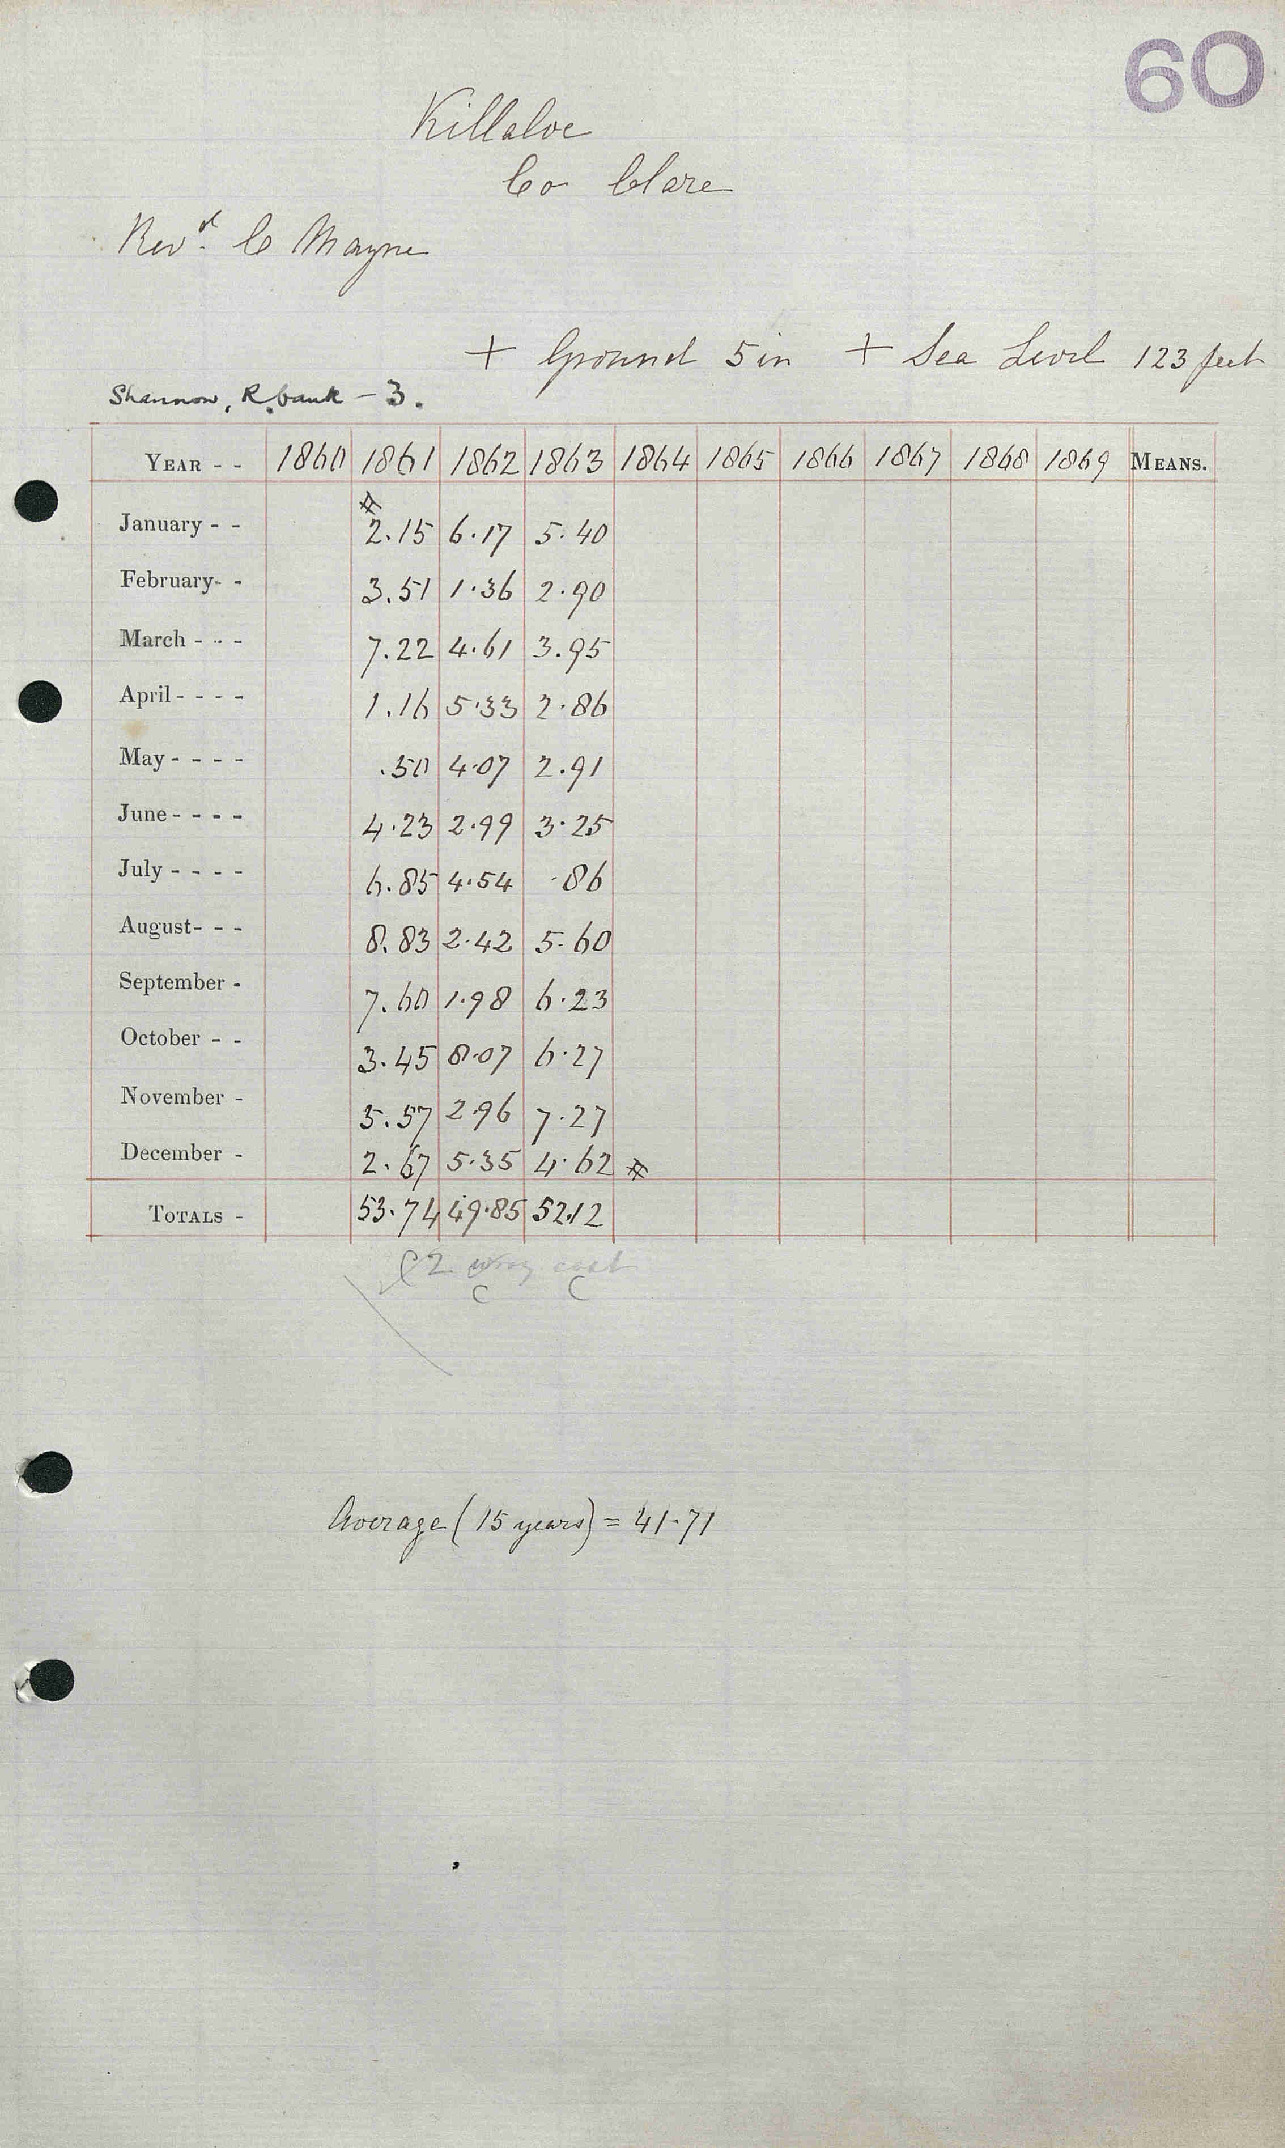 60
Killaloe
Co Clare
Revd. C Mayne
+ Ground 5 in + Sea Level 123 feet
Shannon, R. bank - 3.
YEAR - - 1860 1861 1862 1863 1864 1865 1866 1867 1868 1869 MEANS.
January - - 2.15 6.17 5.40
February - - 3.51 1.36 2.90
March - - - 7.22 4.61 3.95
April - - - - 1.16 5.33 2.86
May - - - - .50 4.07 2.91
June - - - - 4.23 2.99 3.25
July - - - - 6.85 4.54 .86
August - - - 8.83 2.42 5.60
September - 7.60 1.98 6.23
October - - 3.45 8.07 6.27
November - 5.57 2.96 7.27
December - 2.67 5.35 4.62
TOTALS - 53.74 49.85 52.12
wrong cast
C C
Average (15 years) = 41.71